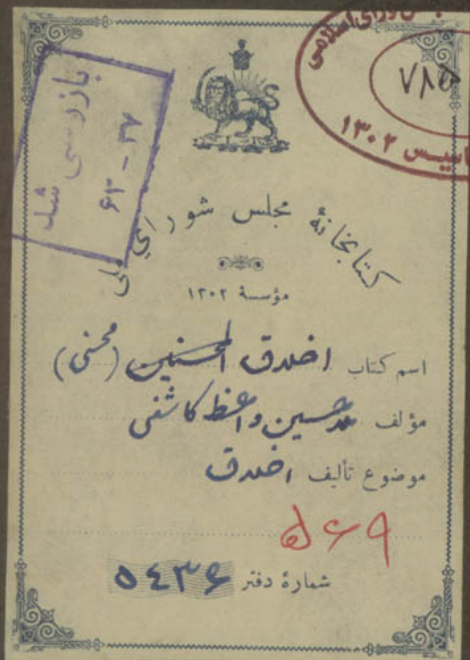 بازرسی شد
۶۳ - ۳۷
شورای اسلامی
۷۸۵
تأسیس ۱۳۰۲
کتابخانهٔ مجلس شورای ملی
مؤسسهٔ ۱۳۰۲
اسم کتاب اخلاق المحسنین (محسنی)
مؤلف حسین واعظ کاشفی
موضوع تألیف اخلاق
شمارهٔ دفتر ۵۴۳۶